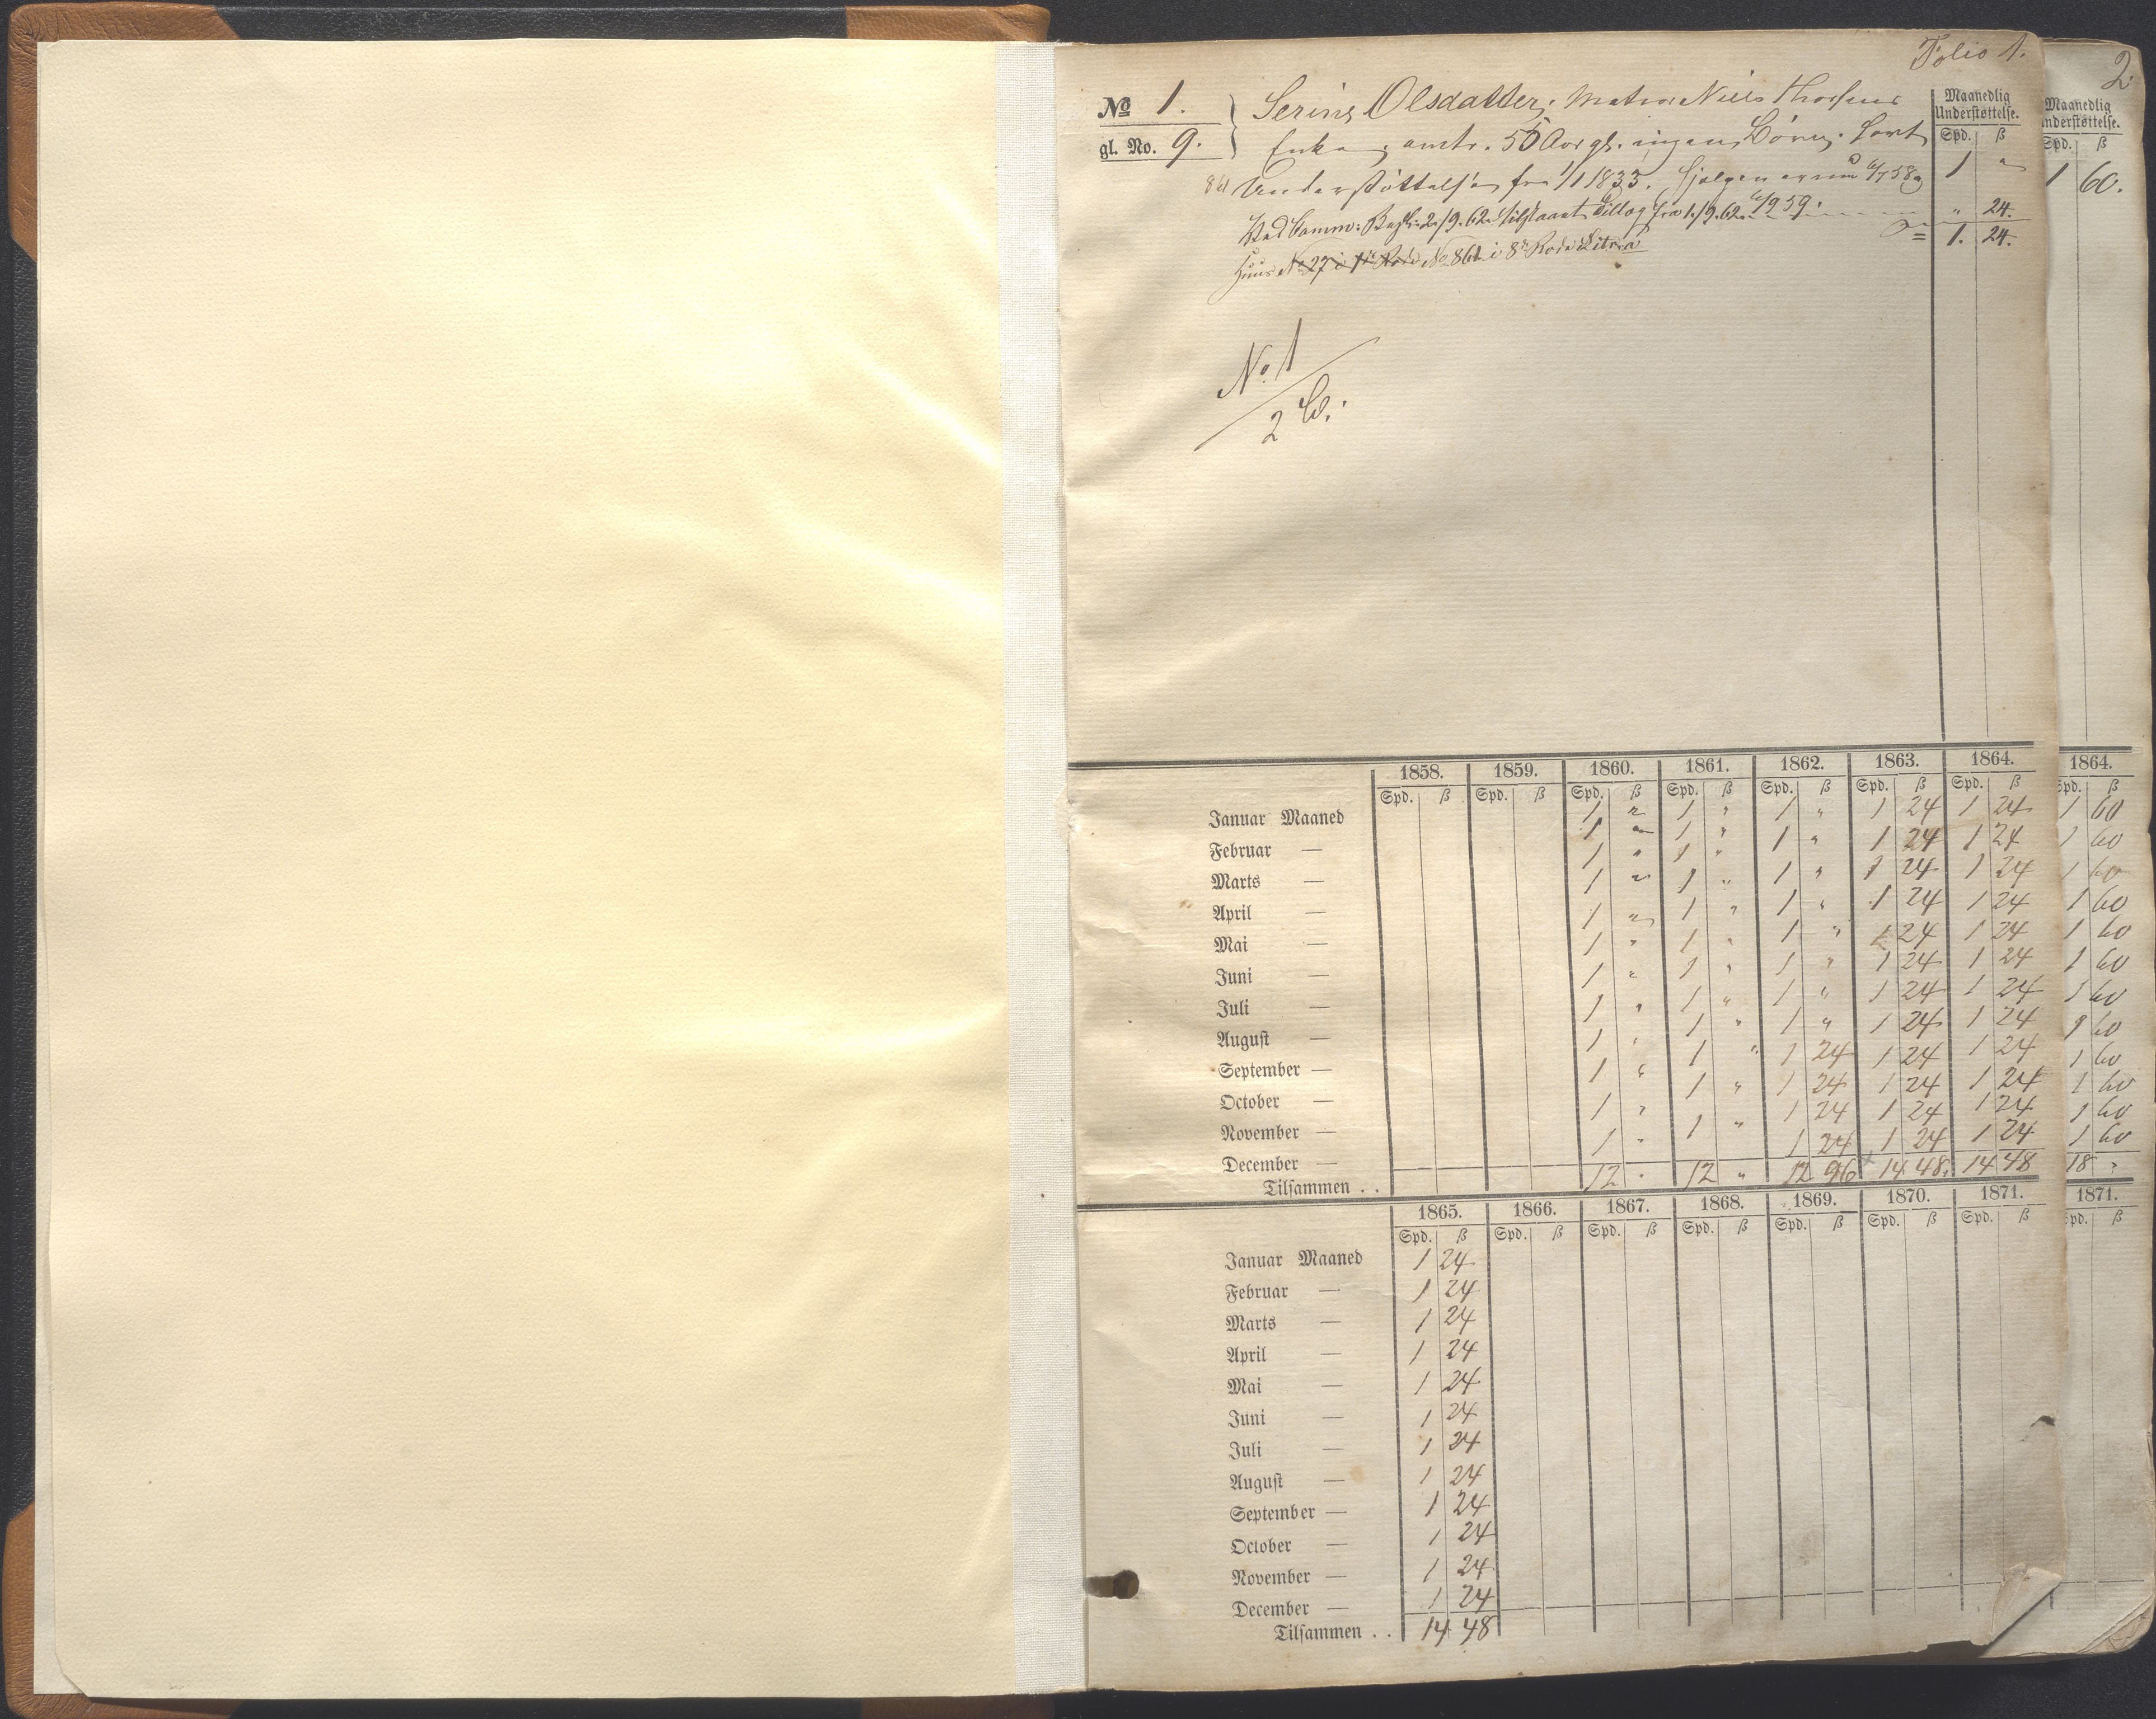 Folio 1.
No 1.
gl. No. 9.
Serine Olsdatter, Matros Niels Thorsens
Enke, omtr. 55 Aar gl. ingen Börn. havt
861 Understöttelse fra 1/1 1833.
Ved Comm: Besl: 2/9.62 tilstaaet Tillæg fra 1/9.62
Huus No 27 i 1ste Rode No 861 i 8de Rode Litra
Maanedlig
Understøttelse.
Spd. ß
1 "
" 24.
= 1. 24.
No. 1
2
1858. 1859. 1860. 1861. 1862. 1863. 1864.
Spd. ß Spd. ß Spd. ß Spd. ß Spd. ß Spd. ß Spd. ß
Januar Maaned 1 " 1 " 1 " 1 24 1 24
Februar — 1 " 1 " 1 " 1 24 1 24
Marts — 1 " 1 " 1 " 1 24 1 24
April — 1 " 1 " 1 " 1 24 1 24
Mai — 1 " 1 " 1 " 1 24 1 24
Juni — 1 " 1 " 1 " 1 24 1 24
Juli — 1 " 1 " 1 " 1 24 1 24
August — 1 " 1 " 1 " 1 24 1 24
September — 1 " 1 " 1 24 1 24 1 24
October — 1 " 1 " 1 24 1 24 1 24
November — 1 " 1 " 1 24 1 24 1 24
December — 1 " 1 " 1 24 1 24 1 24
Tilsammen . . 12 " 12 " 12 96 14 48. 14 48
1865. 1866. 1867. 1868. 1869. 1870. 1871.
Spd. ß Spd. ß Spd. ß Spd. ß Spd. ß Spd. ß Spd. ß
Januar Maaned 1 24
Februar — 1 24
Marts — 1 24
April — 1 24
Mai — 1 24
Juni — 1 24
Juli — 1 24
August — 1 24
September — 1 24
October — 1 24
November — 1 24
December — 1 24
Tilsammen . . 14 48
2.
Maanedlig
nderstøttelse.
Spd. ß
1 60.
1864.
Spd. ß
1 60
1 60
1 60
1 60
1 60
1 60
1 60
1 60
1 60
1 60
1 60
1 60
18 "
1871.
Spd. ß